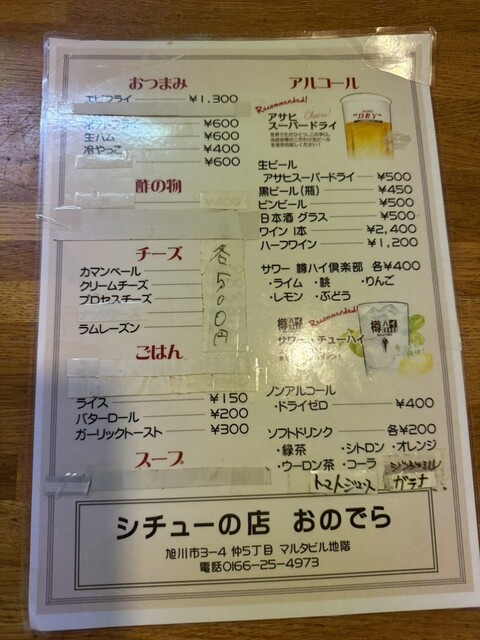 おつまみ
エビフライ ¥1,300
¥600
生ハム ¥600
冷やっこ ¥400
¥600
酢の物
チーズ 各500円
カマンベール
クリームチーズ
プロセスチーズ
ラムレーズン
ごはん
ライス ¥150
バターロール ¥200
ガーリックトースト ¥300
スープ
アルコール
Recommended!
アサヒ
スーパードライ
生ビール
アサヒスーパードライ ¥500
黒ビール(瓶) ¥450
ビンビール ¥500
日本酒 グラス ¥500
ワイン 1本 ¥2,400
ハーフワイン ¥1,200
サワー 樽ハイ倶楽部 各¥400
・ライム ・桃 ・りんご
・レモン ・ぶどう
Recommended!
サワー・チューハイ
ノンアルコール
・ドライゼロ ¥400
ソフトドリンク 各¥200
・緑茶 ・シトロン ・オレンジ
・ウーロン茶 ・コーラ
トマトジュース ガラナ
シチューの店 おのでら
旭川市3-4 仲5丁目 マルタビル地階
電話0166-25-4973